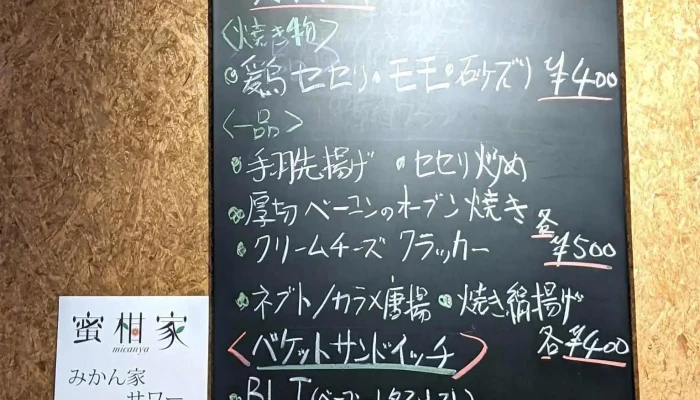 〈焼き物〉
・鶏 セセリ・モモ・砂ズリ ¥400
〈一品〉
・手羽先揚げ ・セセリ炒め
・厚切ベーコンのオーブン焼き
・クリームチーズ クラッカー 各¥500
・ネブト/カラメ唐揚 ・焼き絹揚げ
各¥400
〈バケットサンドイッチ〉
・BLT
蜜柑家
micanya
みかん家
サワー